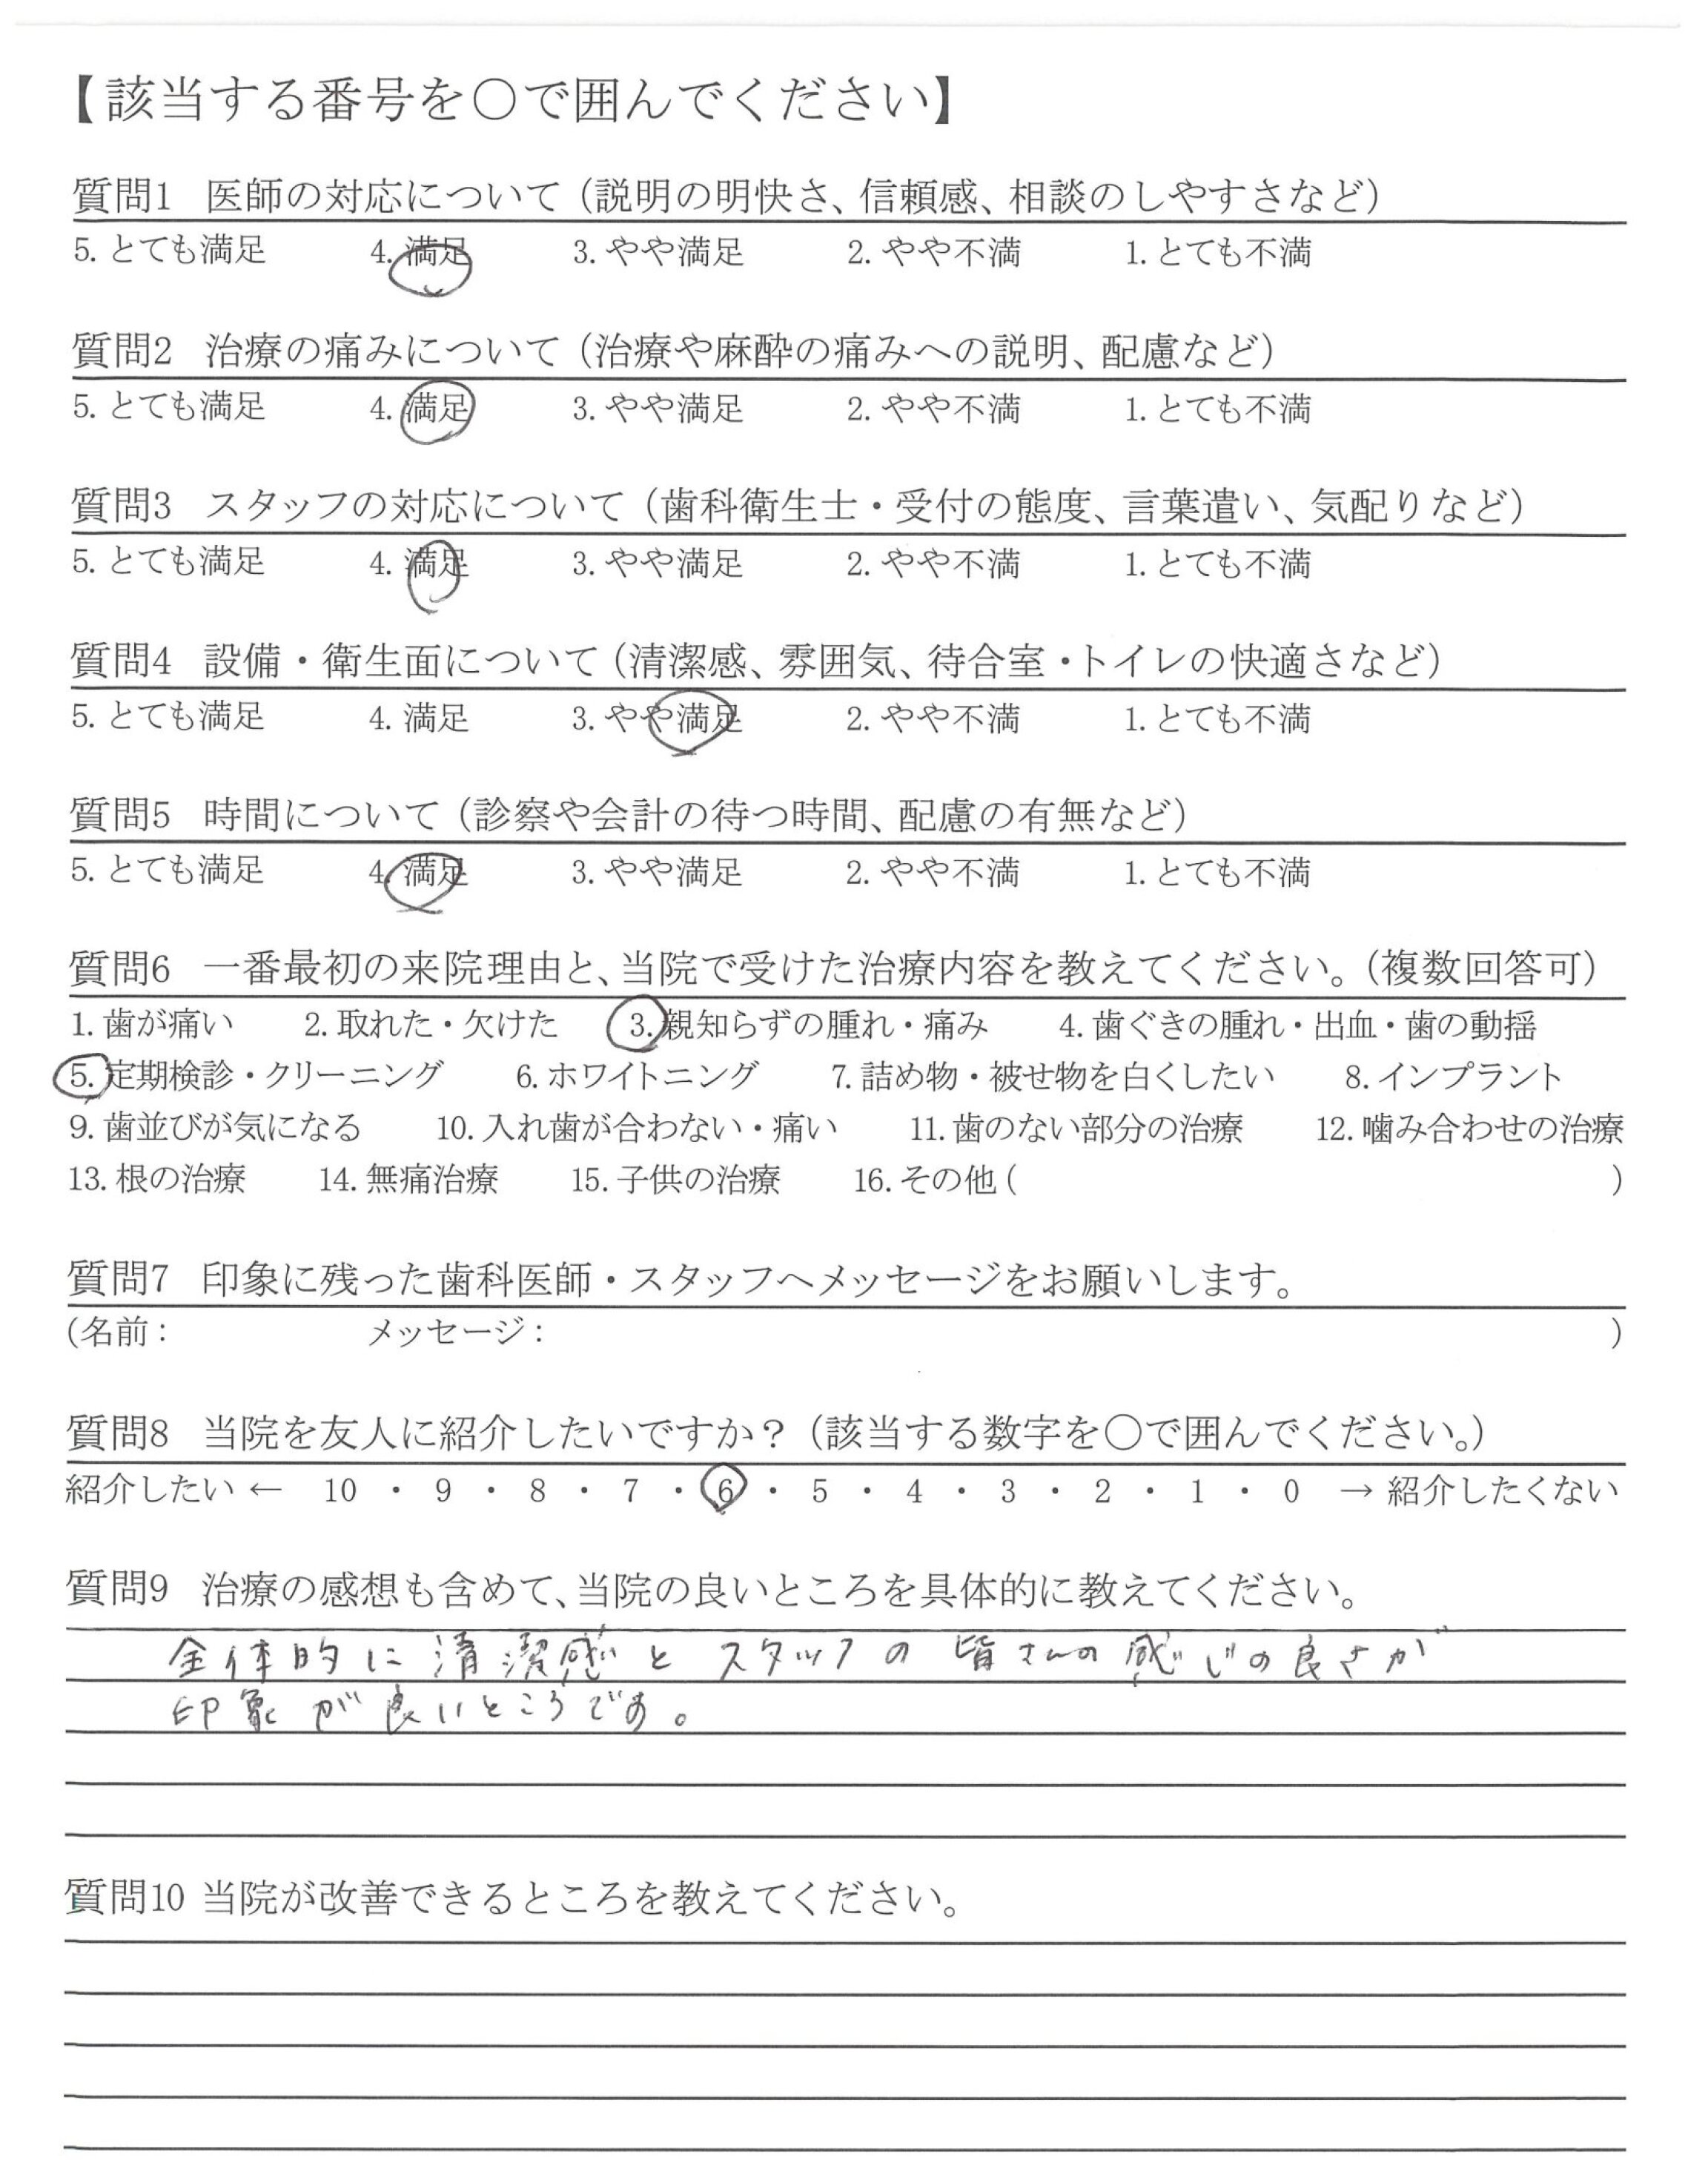 【該当する番号を〇で囲んでください】
質問1 医師の対応について（説明の明快さ、信頼感、相談のしやすさなど）
5. とても満足 4. 満足 3. やや満足 2. やや不満 1. とても不満
質問2 治療の痛みについて（治療や麻酔の痛みへの説明、配慮など）
5. とても満足 4. 満足 3. やや満足 2. やや不満 1. とても不満
質問3 スタッフの対応について（歯科衛生士・受付の態度、言葉遣い、気配りなど）
5. とても満足 4. 満足 3. やや満足 2. やや不満 1. とても不満
質問4 設備・衛生面について（清潔感、雰囲気、待合室・トイレの快適さなど）
5. とても満足 4. 満足 3. やや満足 2. やや不満 1. とても不満
質問5 時間について（診察や会計の待つ時間、配慮の有無など）
5. とても満足 4. 満足 3. やや満足 2. やや不満 1. とても不満
質問6 一番最初の来院理由と、当院で受けた治療内容を教えてください。（複数回答可）
1. 歯が痛い 2. 取れた・欠けた 3. 親知らずの腫れ・痛み 4. 歯ぐきの腫れ・出血・歯の動揺
5. 定期検診・クリーニング 6. ホワイトニング 7. 詰め物・被せ物を白くしたい 8. インプラント
9. 歯並びが気になる 10. 入れ歯が合わない・痛い 11. 歯のない部分の治療 12. 噛み合わせの治療
13. 根の治療 14. 無痛治療 15. 子供の治療 16. その他 ( )
質問7 印象に残った歯科医師・スタッフへメッセージをお願いします。
(名前： メッセージ： )
質問8 当院を友人に紹介したいですか？（該当する数字を〇で囲んでください。）
紹介したい ← 10 ・ 9 ・ 8 ・ 7 ・ 6 ・ 5 ・ 4 ・ 3 ・ 2 ・ 1 ・ 0 → 紹介したくない
質問9 治療の感想も含めて、当院の良いところを具体的に教えてください。
全体的に清潔感とスタッフの皆さんの感じの良さが
印象が良いところです。
質問10 当院が改善できるところを教えてください。